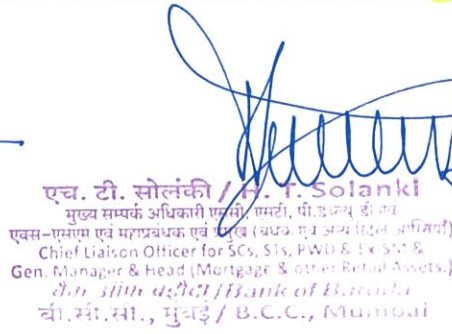 एच. टी. सोलंकी / H. T. Solanki
मुख्य सम्पर्क अधिकारी एससी, एसटी, पी.डब्ल्यू डी एवं
एक्स-एसएम एवं महाप्रबंधक एवं प्रमुख (बंधक एवं अन्य रिटेल आस्तियाँ)
Chief Liaison Officer for SCs, STs, PWD & Ex-SM &
Gen. Manager & Head (Mortgage & other Retail Assets.)
बैंक ऑफ बड़ौदा / Bank of Baroda
बी.सी.सी., मुंबई / B.C.C., Mumbai